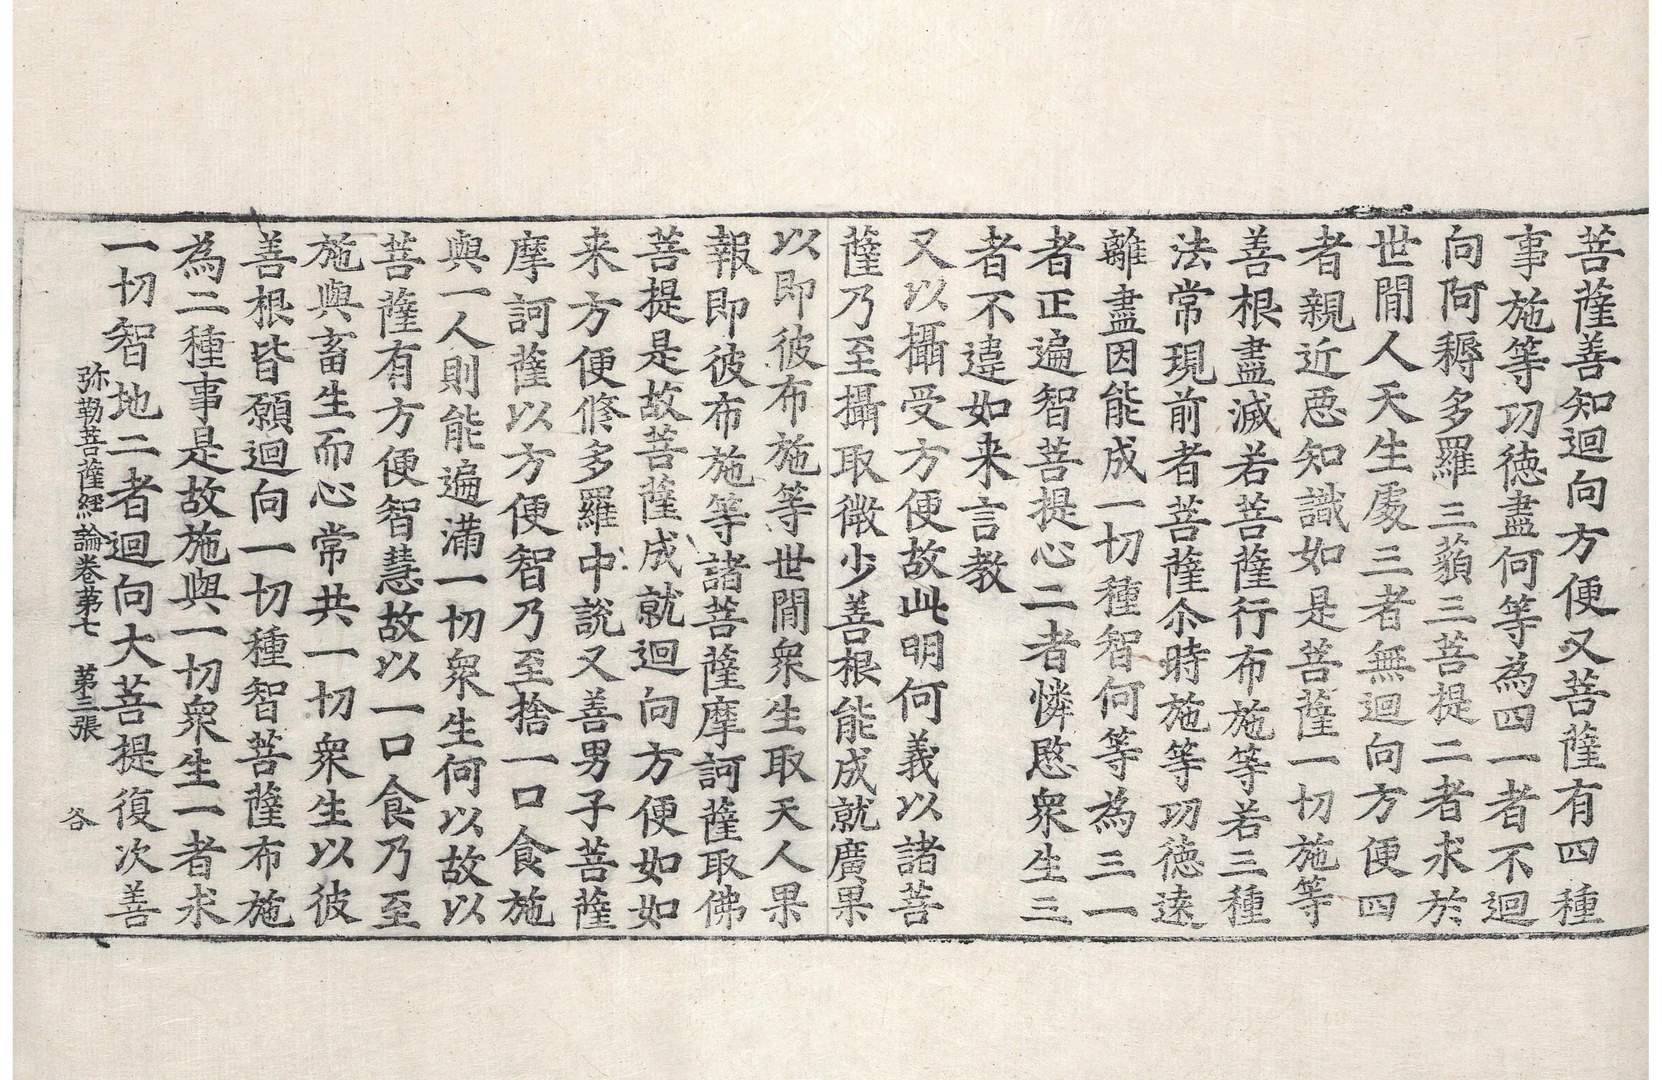 菩薩善知迴向方便又菩薩有四種
事施等功徳盡何等為四一者不迴
向阿耨多羅三藐三菩提二者求於
世間人天生處三者無迴向方便四
者親近惡知識如是菩薩一切施等
善根盡滅若菩薩行布施等若三種
法常現前者菩薩尒時施等功徳遠
離盡因能成一切種智何等為三一
者正遍智菩提心二者憐愍衆生三
者不違如来言教
又以攝受方便故此明何義以諸菩
薩乃至攝取微少善根能成就廣果
以即彼布施等世間衆生取天人果
報即彼布施等諸菩薩摩訶薩取佛
菩提是故菩薩成就迴向方便如如
来方便修多羅中說又善男子菩薩
摩訶薩以方便智乃至捨一口食施
與一人則能遍滿一切衆生何以故以
菩薩有方便智慧故以一口食乃至
施與畜生而心常共一切衆生以彼
善根皆願迴向一切種智菩薩布施
為二種事是故施與一切衆生一者求
一切智地二者迴向大菩提復次善
弥勒菩薩經論卷苐七 苐三張 谷